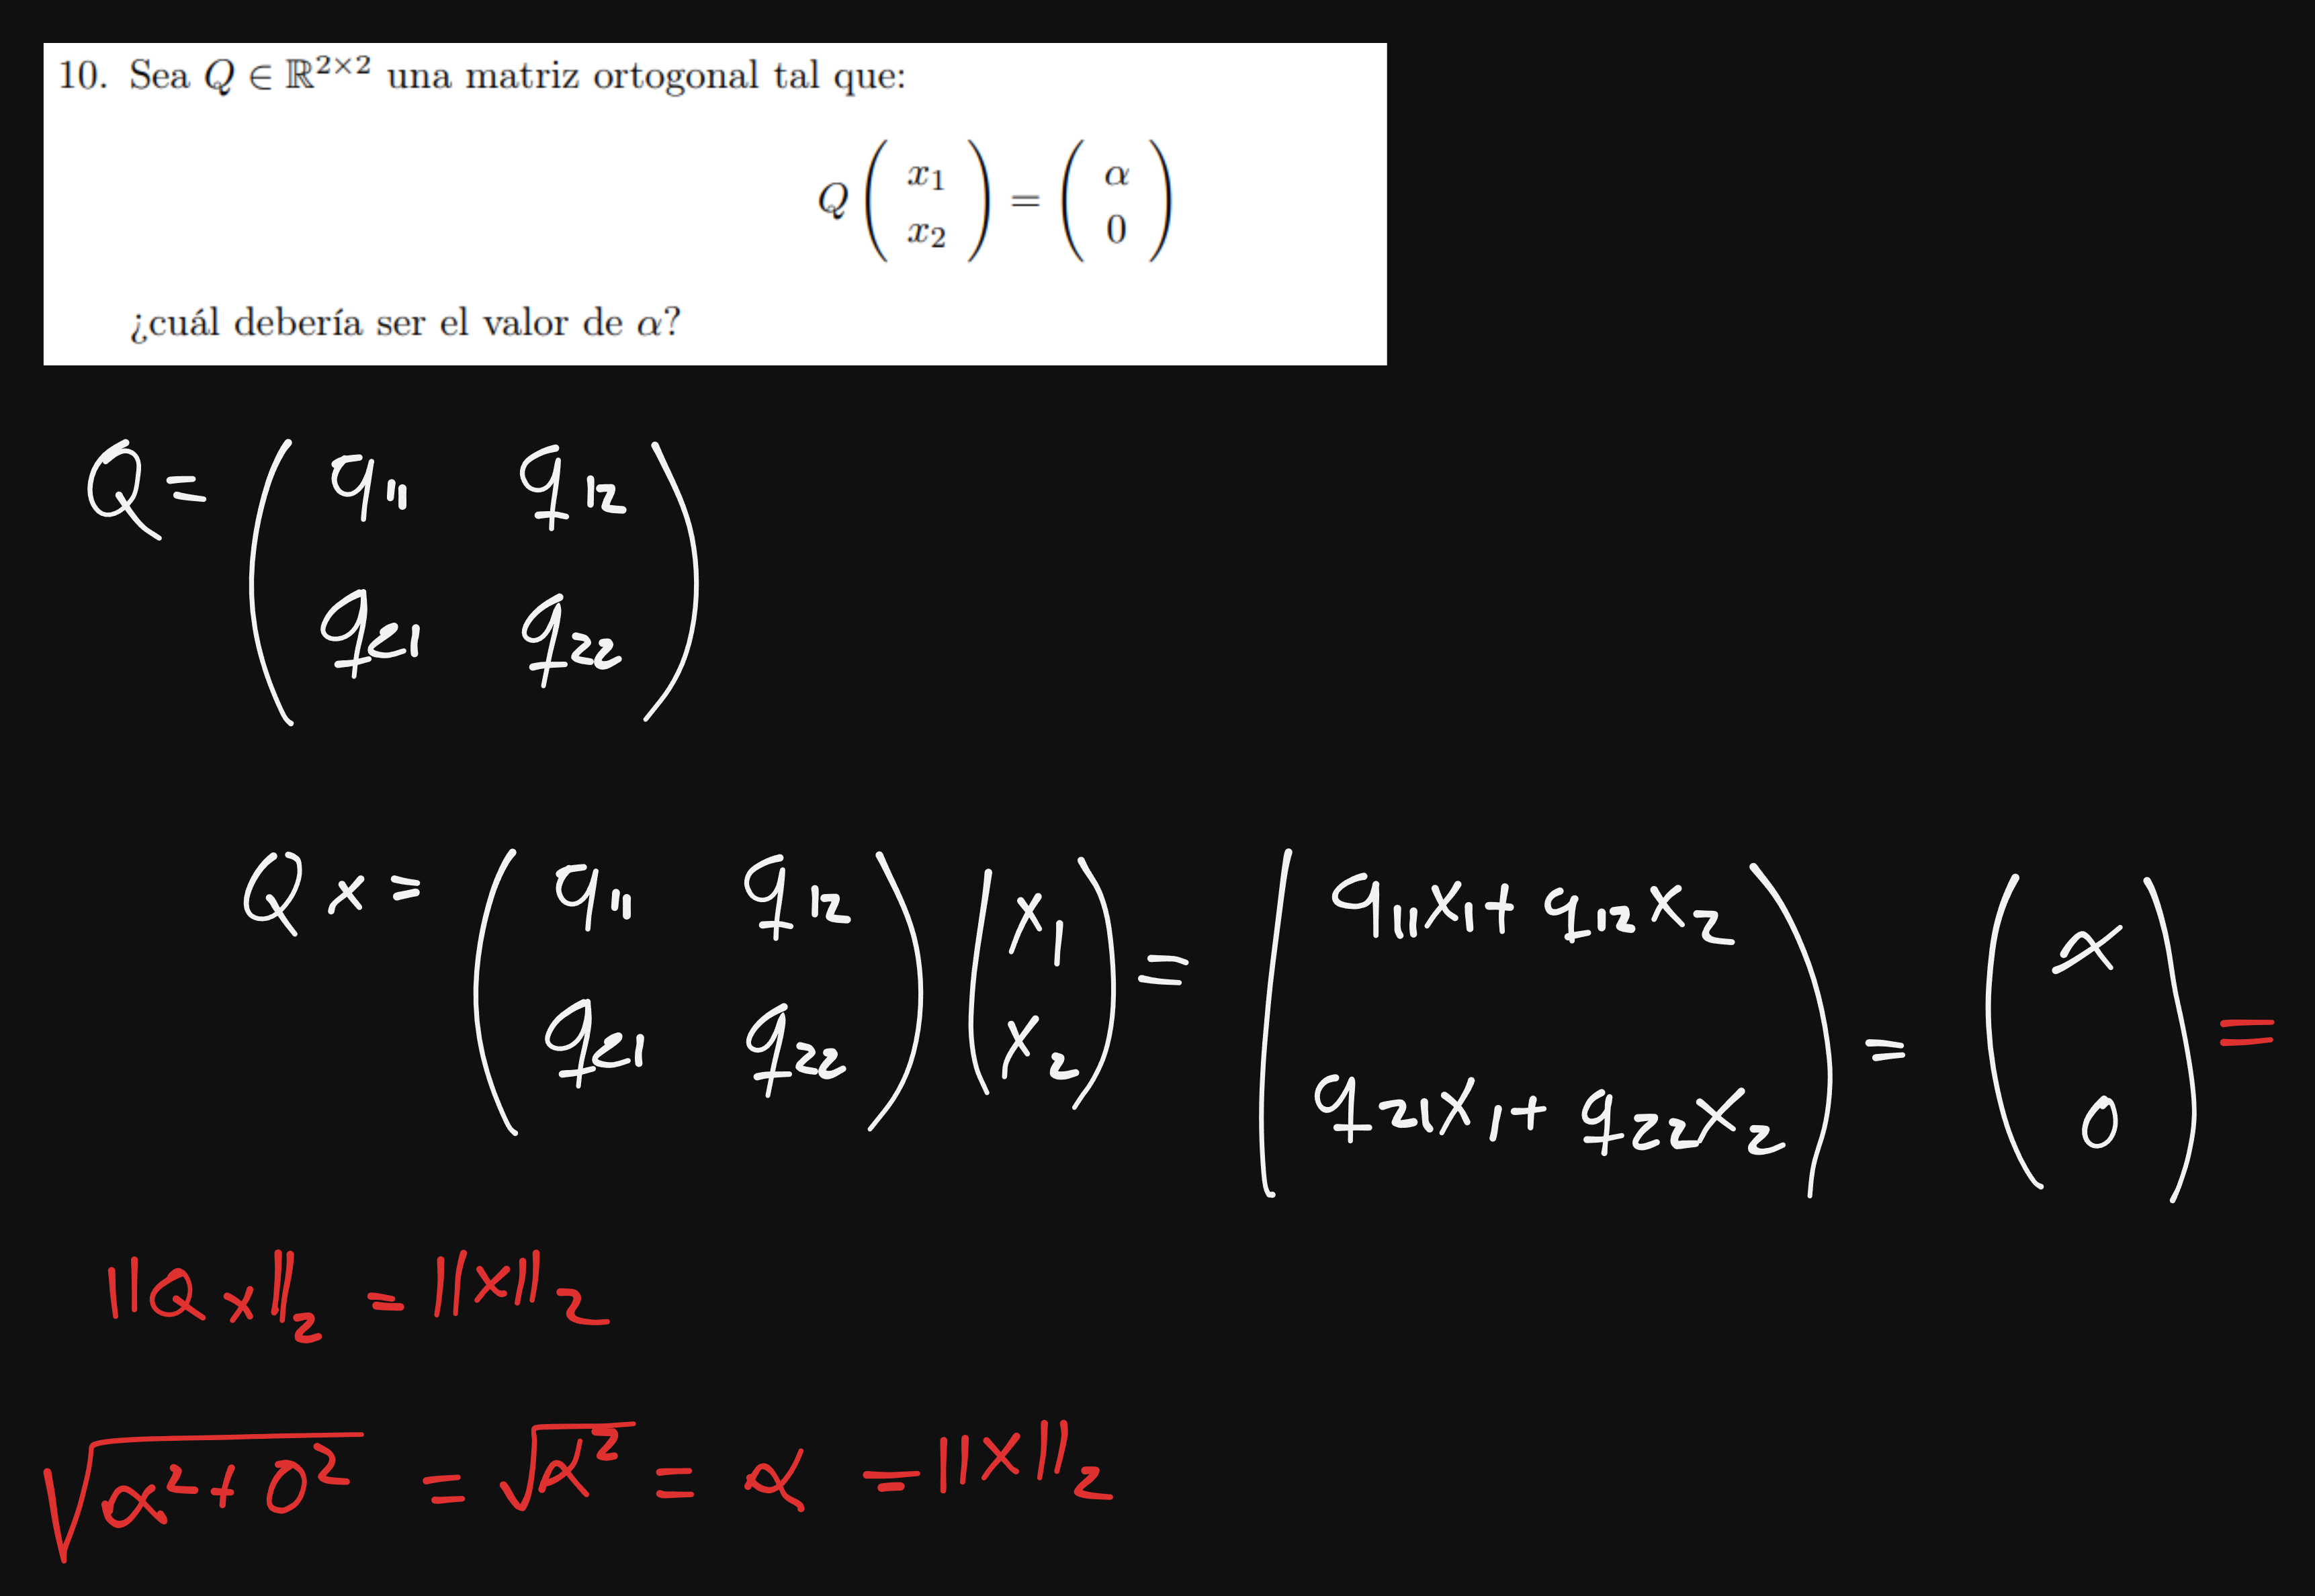 10. Sea Q ∈ ℝ^{2×2} una matriz ortogonal tal que:
Q ( x_1 ; x_2 ) = ( α ; 0 )
¿cuál debería ser el valor de α?
Q = ( q_{11} q_{12} ; q_{21} q_{22} )
Q x = ( q_{11} q_{12} ; q_{21} q_{22} ) ( x_1 ; x_2 ) = ( q_{11}x_1 + q_{12}x_2 ; q_{21}x_1 + q_{22}x_2 ) = ( α ; 0 ) =
||Qx||_2 = ||x||_2
√(α^2 + 0^2) = √(α^2) = α = ||x||_2